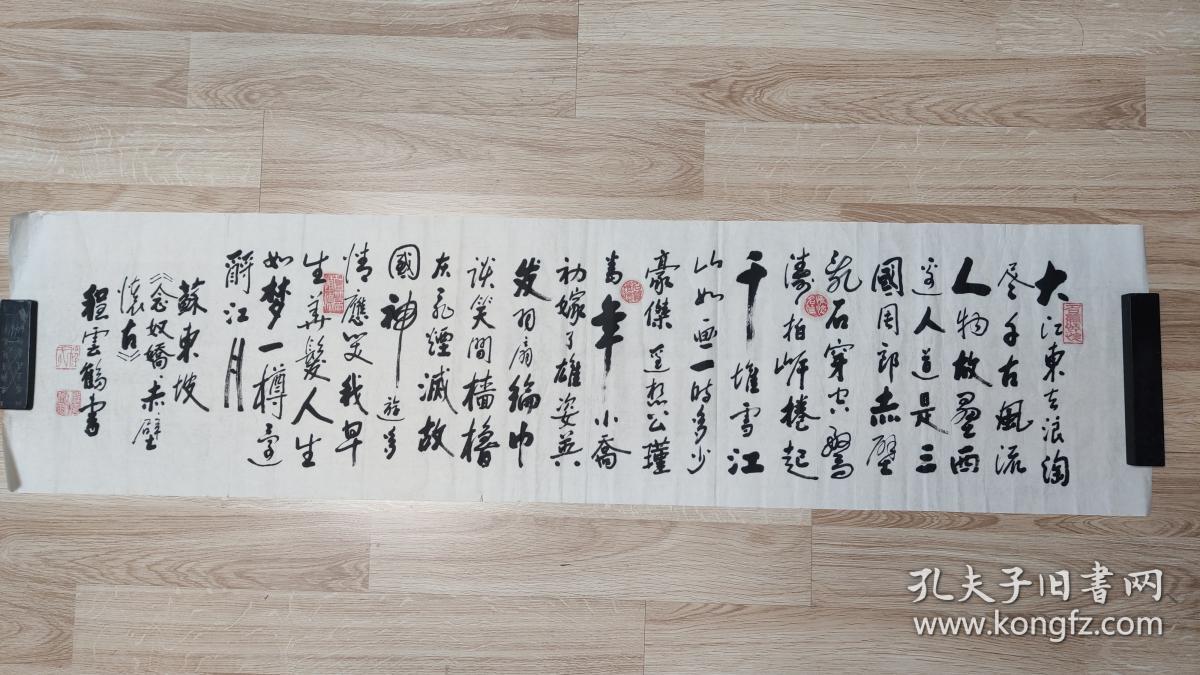 大江東去浪淘
尽千古風流
人物故壘西
邊人道是三
國周郎赤壁
乱石穿空驚
濤拍岸捲起
千堆雪江
山如画一時多少
豪傑遥想公瑾
當年小喬
初嫁了雄姿英
发羽扇綸巾
談笑間檣櫓
灰飛煙滅故
國神遊多
情應笑我早
生華髮人生
如梦一樽還
酹江月
蘇東坡
《念奴嬌赤壁
懷古》
程雲鶴書
孔夫子旧书网
www.kongfz.com